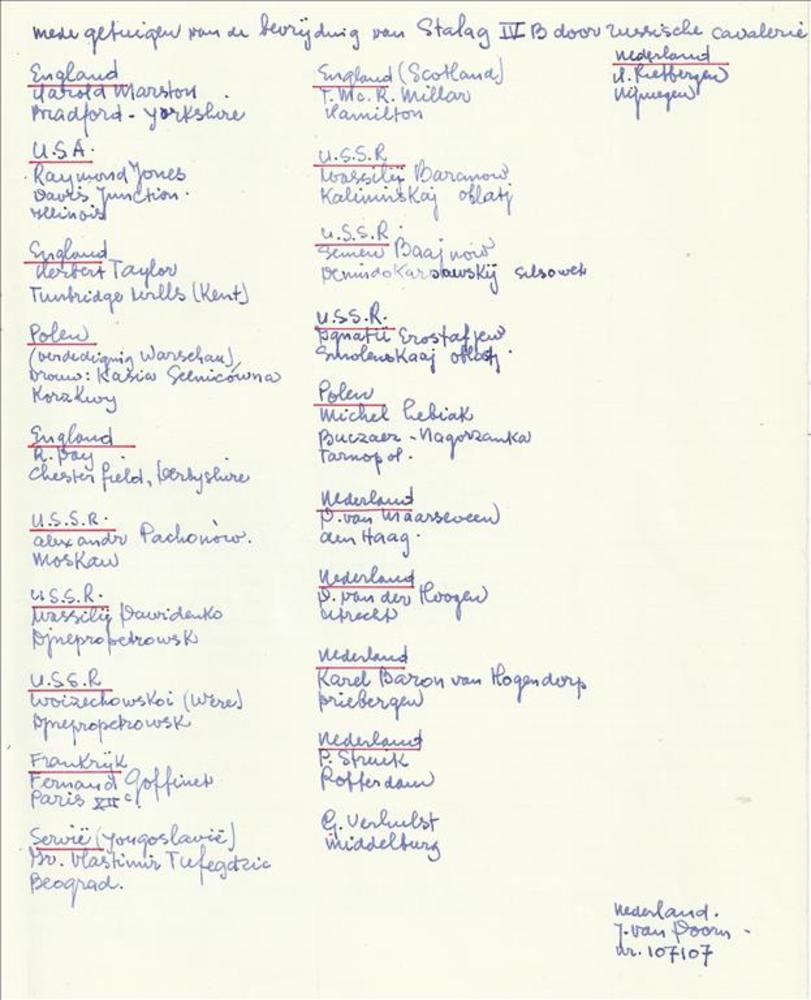 mede getuigen van de bevrijding van Stalag IV B door russische cavalerie
England
Harold Marston
Bradford - Yorkshire
U.S.A.
Raymond Jones
Davis Junction.
Illinois
England
Herbert Taylor
Tunbridge Wells (Kent)
Polen
(verdediging Warschau)
vrouw: Kasia Selnicówna
Korzkwy
England
R. Day
Chesterfield, Derbyshire
U.S.S.R.
Alexandr Pachonów.
Moskau
U.S.S.R.
Wassilij Dawidenko
Djnepropetrowsk
U.S.S.R
Woizechowskoi (Were)
Djnepropetrowsk
Frankrijk
Fernand Goffinet
Paris XII e
Servië (Yougoslavië)
Dr. Vlastimir Tufegdzic
Beograd.
England (Scotland)
T. Mc. R. Millar
Hamilton
U.S.S.R
Wassilij Baranow
Kalininskaj oblatj
U.S.S.R
Semew Baajnow
Selsowek
U.S.S.R.
Ignatii Erostafjew
Smolenskaaj oblastj.
Polen
Michel Lebiak
Buczacz - Nagorzanka
Tarnopol.
Nederland
D. van Maarseveen
den Haag.
Nederland
D. van der Hoogen
Utrecht
Nederland
Karel Baron van Hogendorp
Driebergen
Nederland
P. Struik
Rotterdam
G. Verhulst
Middelburg
Nederland
H. Rietbergen
Nijmegen
Nederland.
J. van Doorn -
nr. 107107